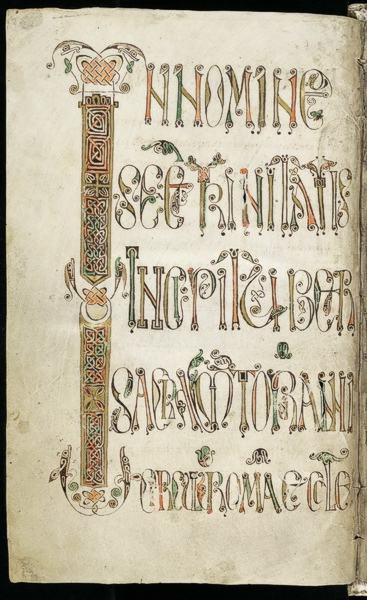 IN NOMINE
SCE TRINITATIS
INCIPIT LIBER
SACRAMTORŪ ANNI
CIRCULI ROMAE ECCLE